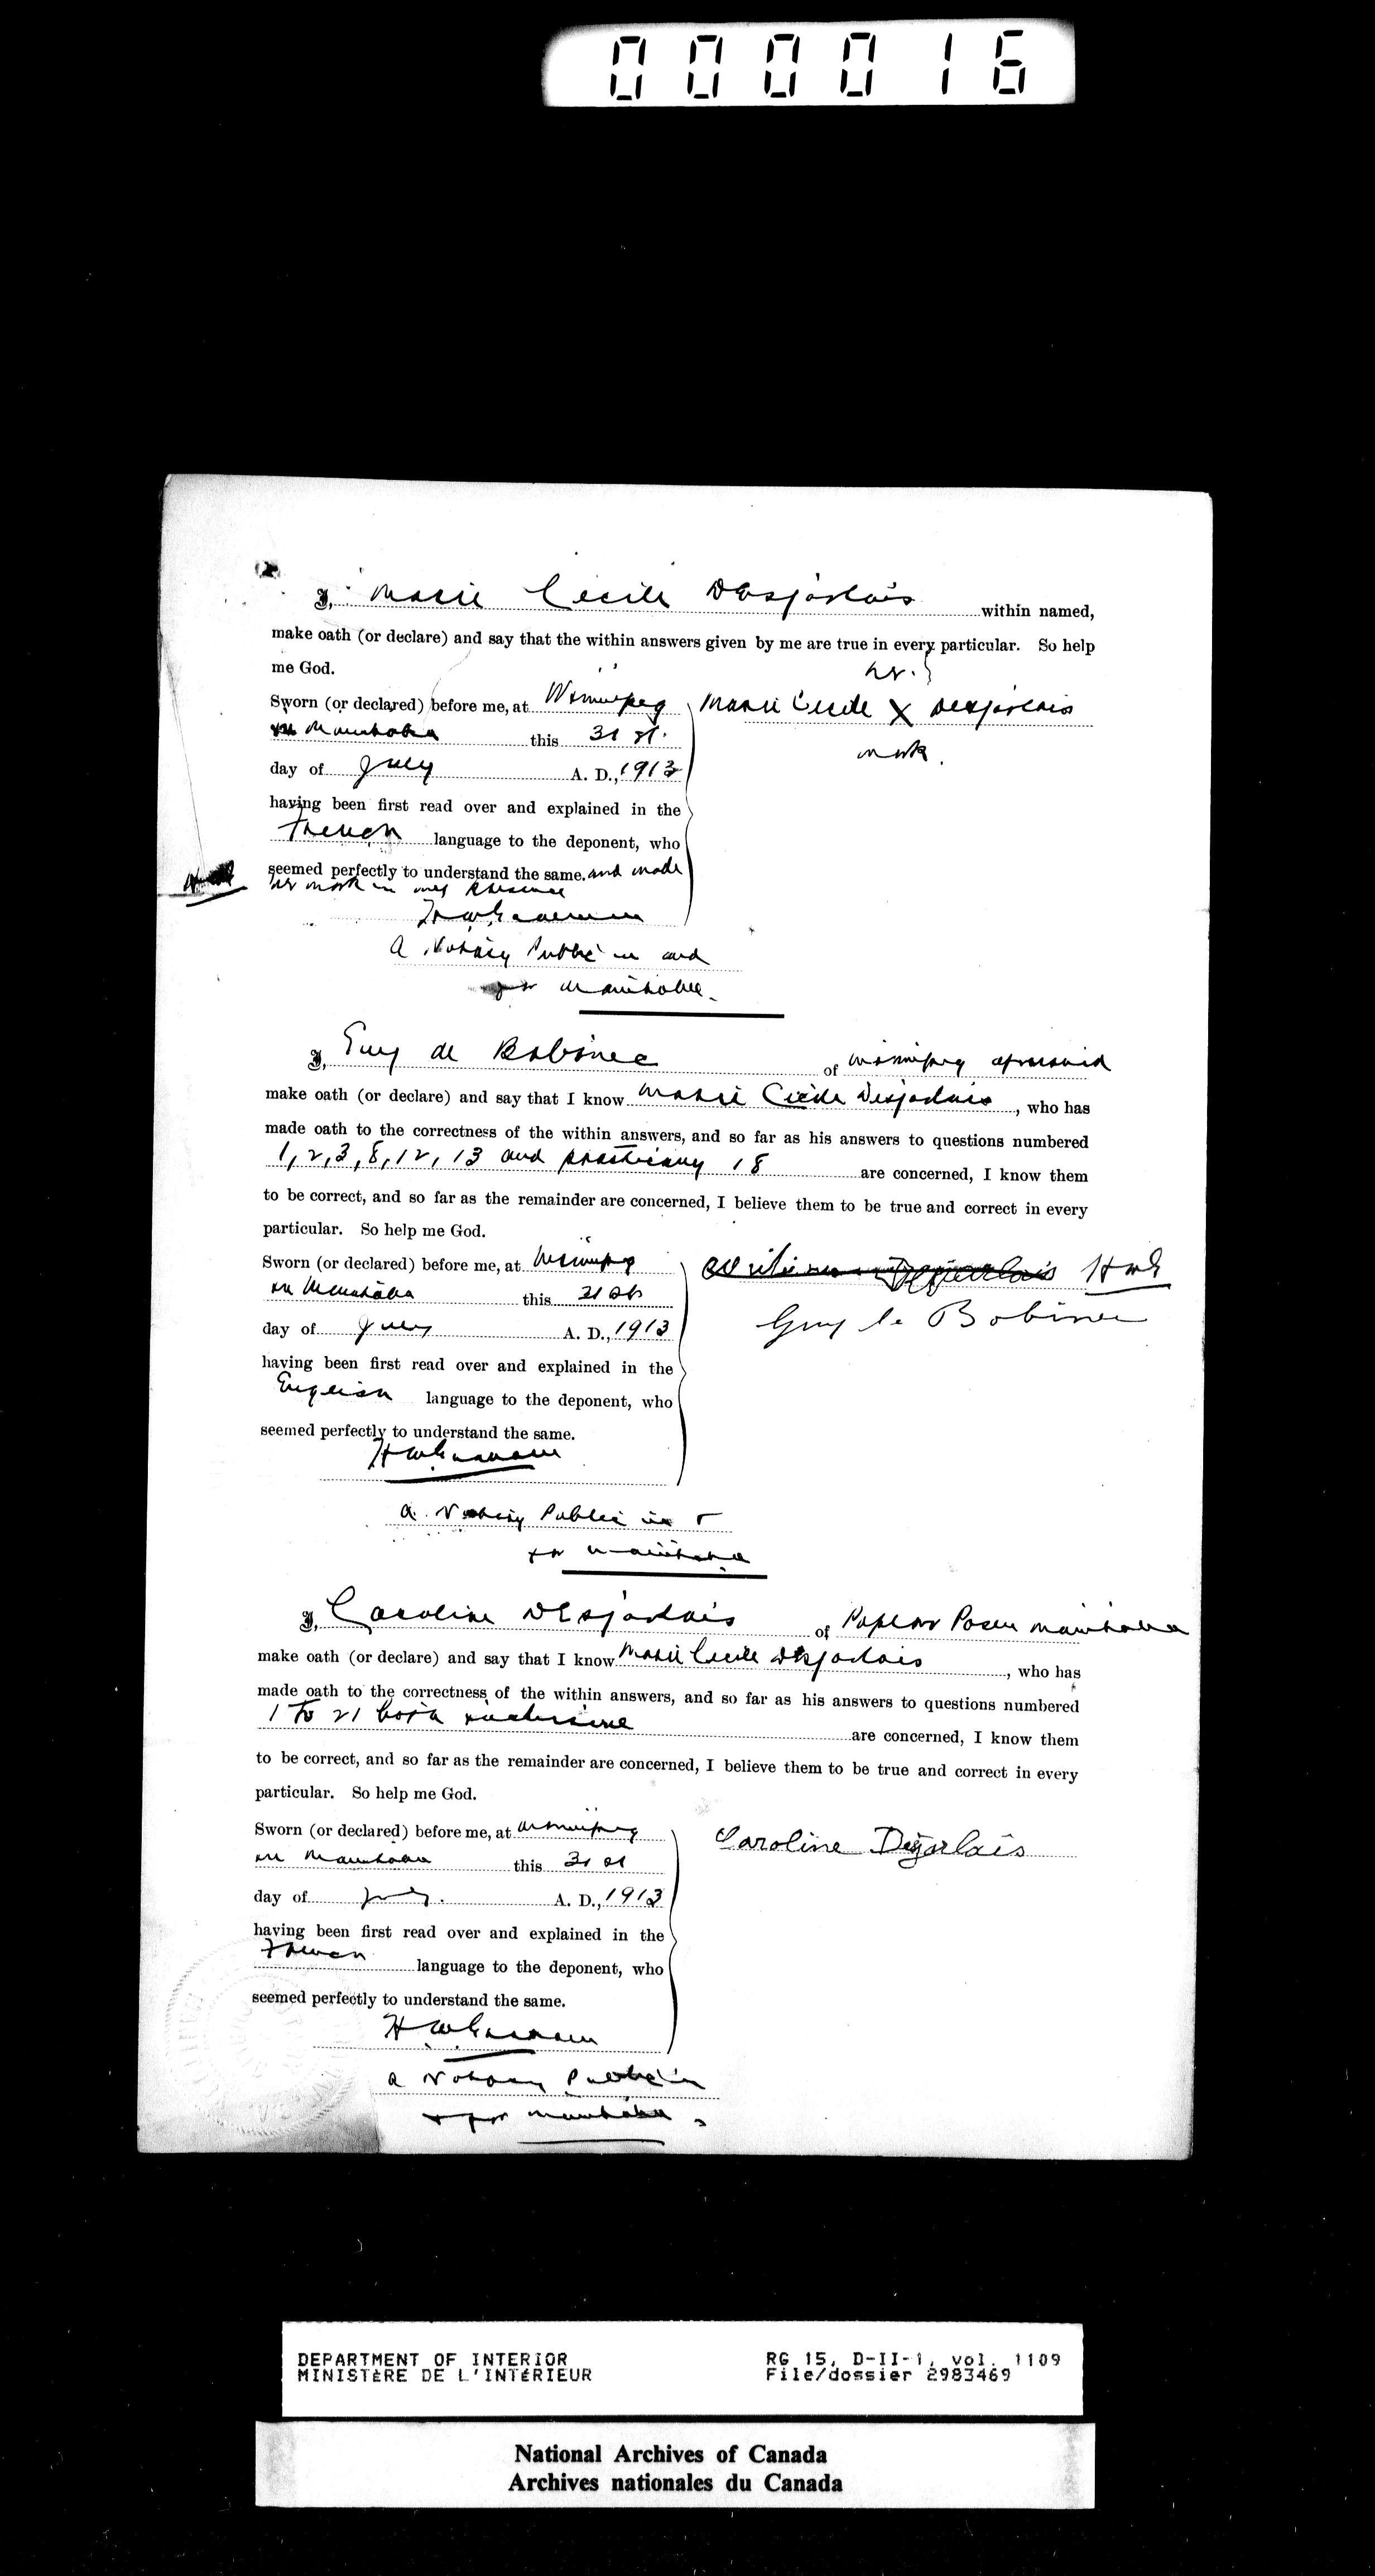 000016
I, Marie Cecile Desjarlais within named,
make oath (or declare) and say that the within answers given by me are true in every particular. So help
me God.
her
Sworn (or declared) before me, at Winnipeg
Marie Cecile X Desjarlais
in Manitoba this 31st.
mark.
day of July A. D., 1913
having been first read over and explained in the
French language to the deponent, who
seemed perfectly to understand the same. and made
her mark in my presence
A Notary Public in and
for Manitoba.
I, Guy de Bobinec of Winnipeg aforesaid
make oath (or declare) and say that I know Marie Cecile Desjarlais, who has
made oath to the correctness of the within answers, and so far as his answers to questions numbered
1, 2, 3, 8, 12, 13 and practically 18 are concerned, I know them
to be correct, and so far as the remainder are concerned, I believe them to be true and correct in every
particular. So help me God.
Sworn (or declared) before me, at Winnipeg
Desjarlais HWG
in Manitoba this 31st
Guy de Bobinec
day of July A. D., 1913
having been first read over and explained in the
English language to the deponent, who
seemed perfectly to understand the same.
a Notary Public in &
for Manitoba
I, Caroline Desjarlais of Poplar Manitoba
make oath (or declare) and say that I know Marie Cecile Desjarlais, who has
made oath to the correctness of the within answers, and so far as his answers to questions numbered
1 to 21 both inclusive are concerned, I know them
to be correct, and so far as the remainder are concerned, I believe them to be true and correct in every
particular. So help me God.
Sworn (or declared) before me, at Winnipeg
Caroline Dejarlais
in Manitoba this 31st
day of July. A. D., 1913
having been first read over and explained in the
French language to the deponent, who
seemed perfectly to understand the same.
a Notary Public in
& for Manitoba.
DEPARTMENT OF INTERIOR
MINISTÈRE DE L'INTÉRIEUR
RG 15, D-II-1, vol. 1109
File/dossier 2983469
National Archives of Canada
Archives nationales du Canada